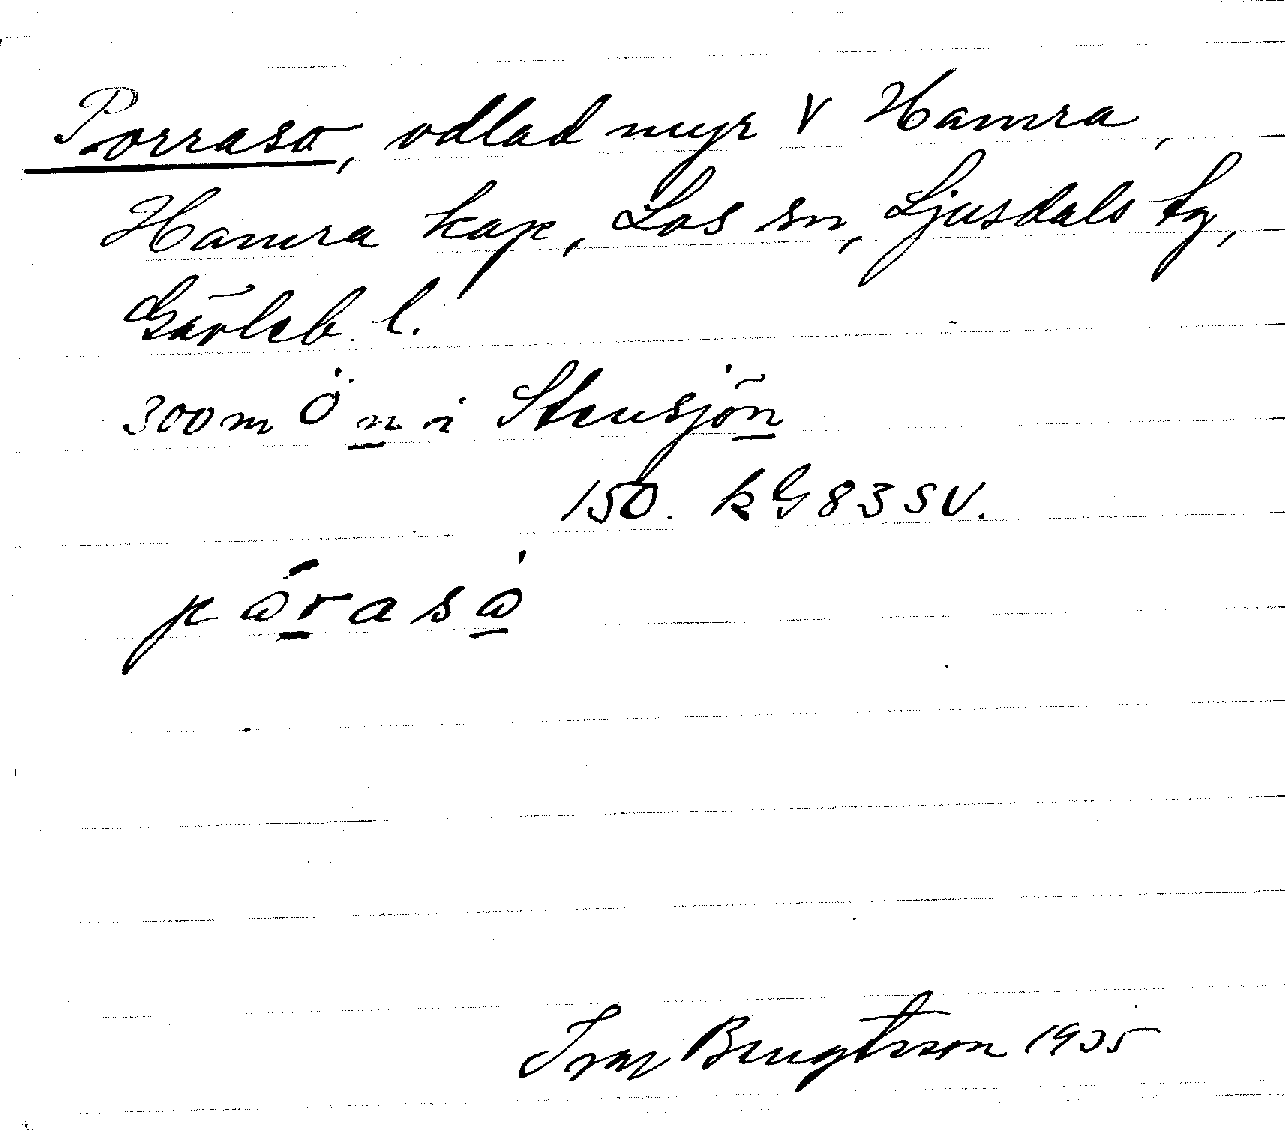 Porraso, odlad myr V Hamra,
Hamra kap, Los sn, Ljusdals tg,
Gävleb. l.
300 m Ö n i Stensjön
150. kG 83 SV.
påraså
Ivar Bengtsson 1935